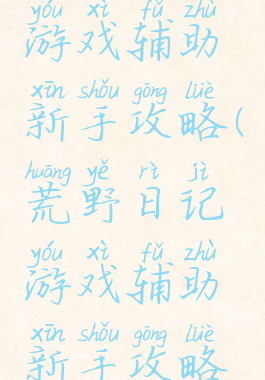 yóu xì fǔ zhù
游戏辅助
xīn shǒu gōng lüè
新手攻略(
huāng yě rì jì
荒野日记
yóu xì fǔ zhù
游戏辅助
xīn shǒu gōng lüè
新手攻略